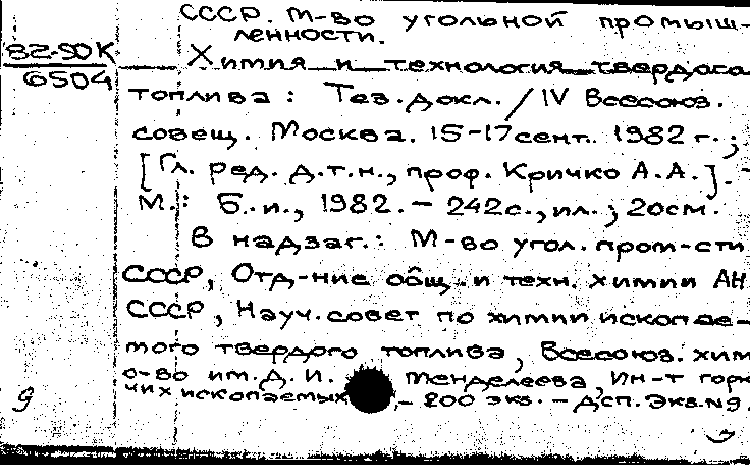 СССР. М-во угольной промыш-
ленности.
82-50К
6504
Химия и технология твердого
топлива: Тез. докл. / IV Всесоюз.
совещ. Москва. 15-17 сент. 1982 г.;
[Гл. ред. д.т.н., проф. Кричко А.А.]. -
М.: Б.и., 1982. - 242с., ил.; 20см.
В надзаг.: М-во угол. пром-сти
СССР, Отд-ние общ. и техн. химии АН
СССР, Науч. совет по химии ископае-
мого твердого топлива, Всесоюз. хим
о-во им. Д. И. Менделеева, Ин-т горю
чих ископаемых. - 200 экз. - Дсп. Экз. №9.
9